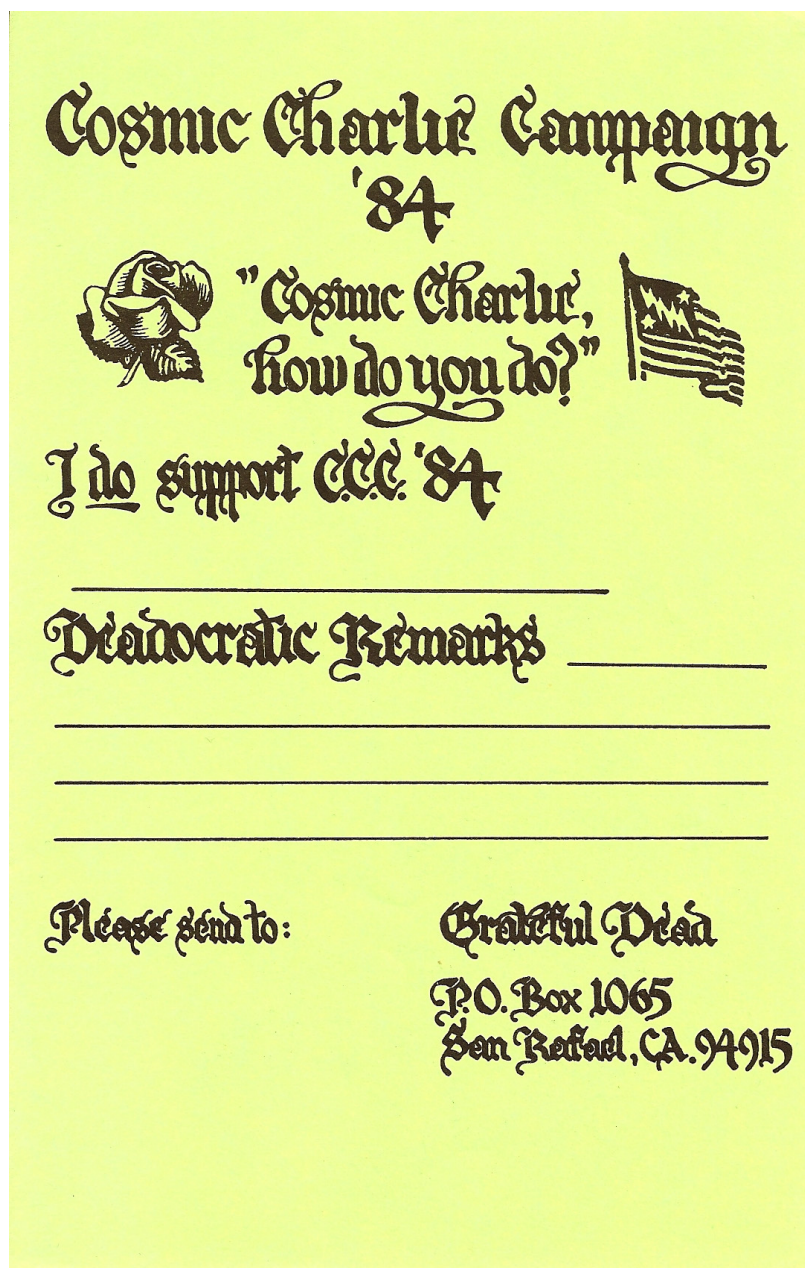 Cosmic Charlie Campaign
'84
"Cosmic Charlie,
how do you do?"
I do support C.C.C. '84
Deadocratic Remarks
Please send to:
Grateful Dead
P.O. Box 1065
San Rafael, CA. 94915